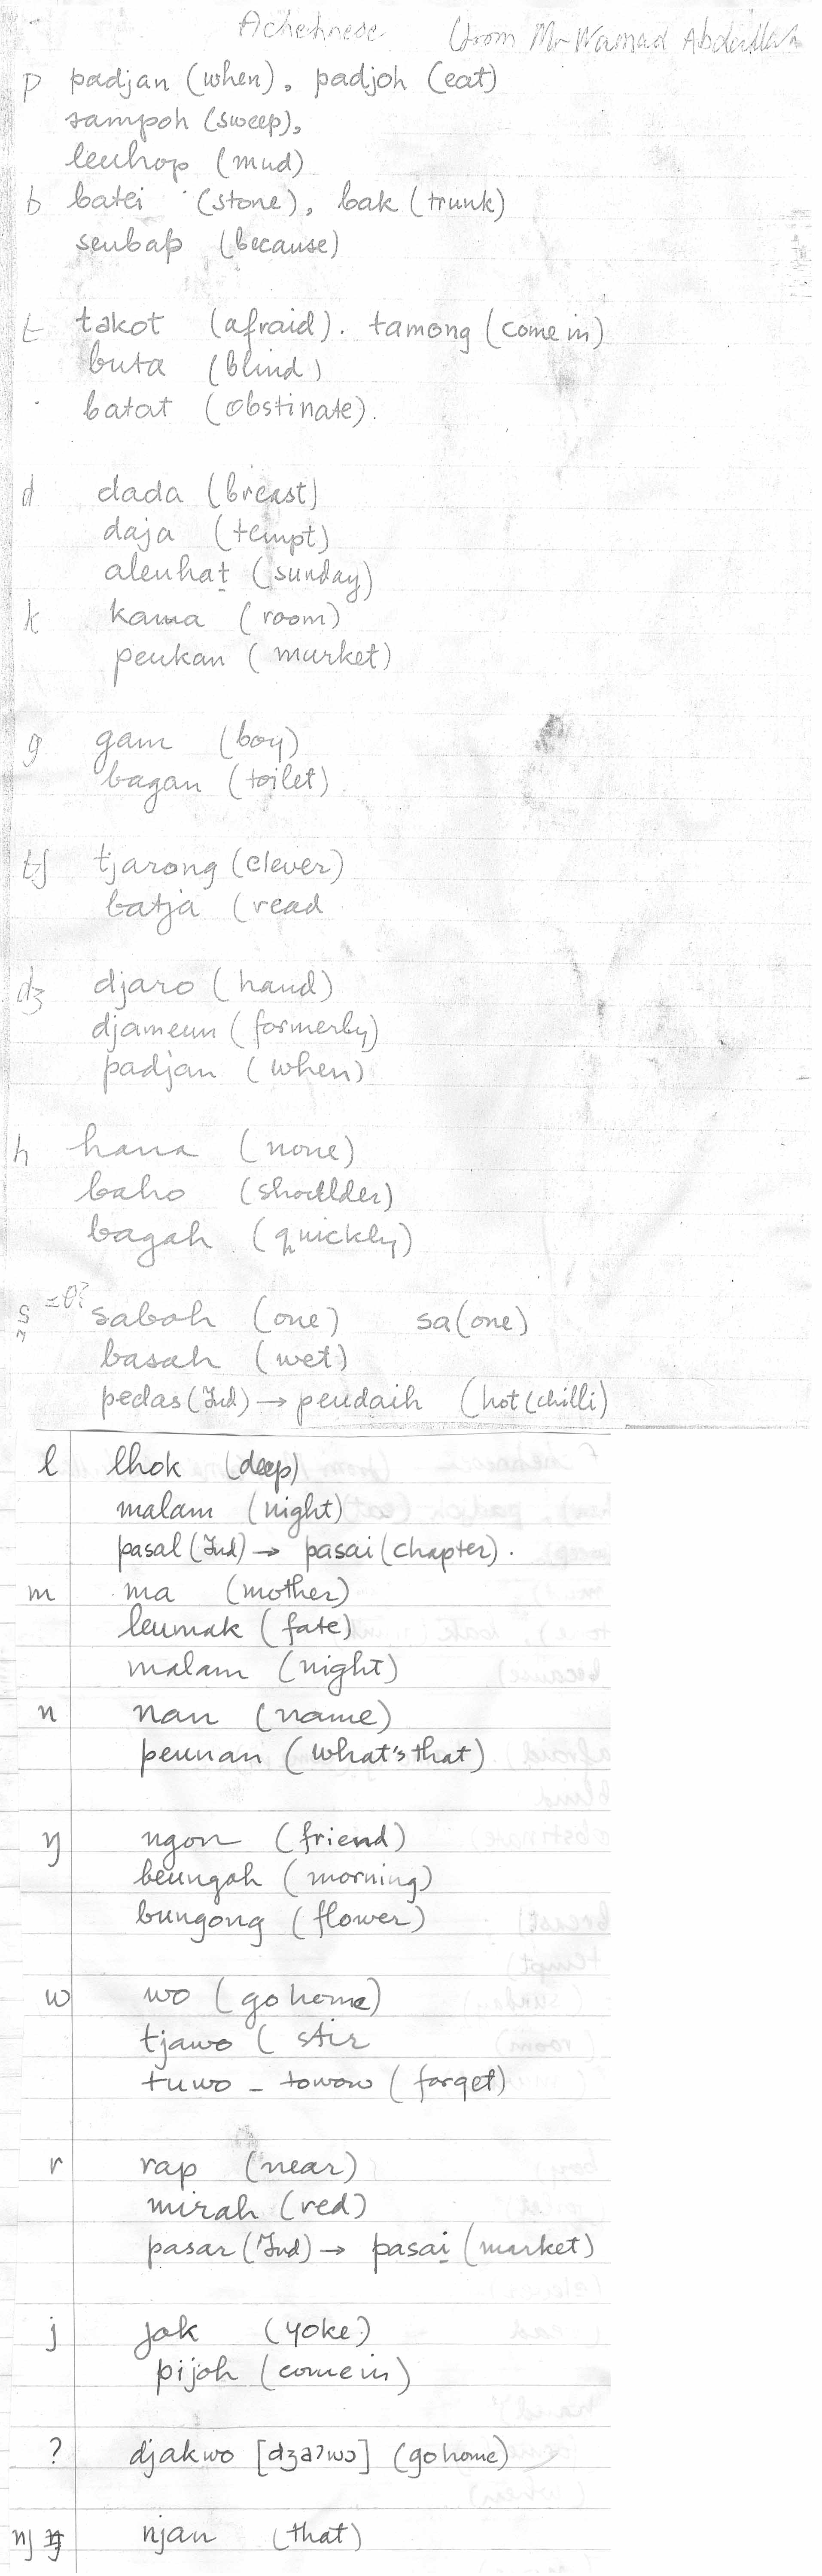 Achehnese (from Mr Wamad Abdullah
p padjan (when), padjoh (eat)
sampoh (sweep),
leuhop (mud)
b batei (stone), bak (trunk)
seubap (because)
t takot (afraid). tamong (come in)
buta (blind)
batat (obstinate).
d dada (breast)
daja (tempt)
aleuhat (sunday)
k kama (room)
peukan (market)
g gam (boy)
bagan (toilet)
tʃ tjarong (clever)
batja (read
dʒ djaro (hand)
djameun (formerly)
padjan (when)
h hana (none)
baho (shoulder)
bagah (quickly)
s =θ? saboh (one) sa (one)
basah (wet)
pedas (Ind) → peudaih (hot (chilli)
l lhok (deep)
malam (night)
pasal (Ind) → pasai (chapter).
m ma (mother)
leumak (fate)
malam (night)
n nan (name)
peunan (what's that)
ŋ ngon (friend)
beungoh (morning)
bungong (flower)
w wo (go home)
tjawo ( stir
tuwo - towow (forget)
r rap (near)
mirah (red)
pasar (Ind) → pasai (market)
j jok (yoke)
pijoh (come in)
? djakwo [dʒaʔwɔ] (go home)
nj njan (that)